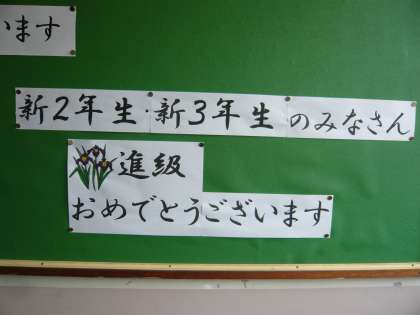 います
新2年生・新3年生 のみなさん
進級
おめでとうございます